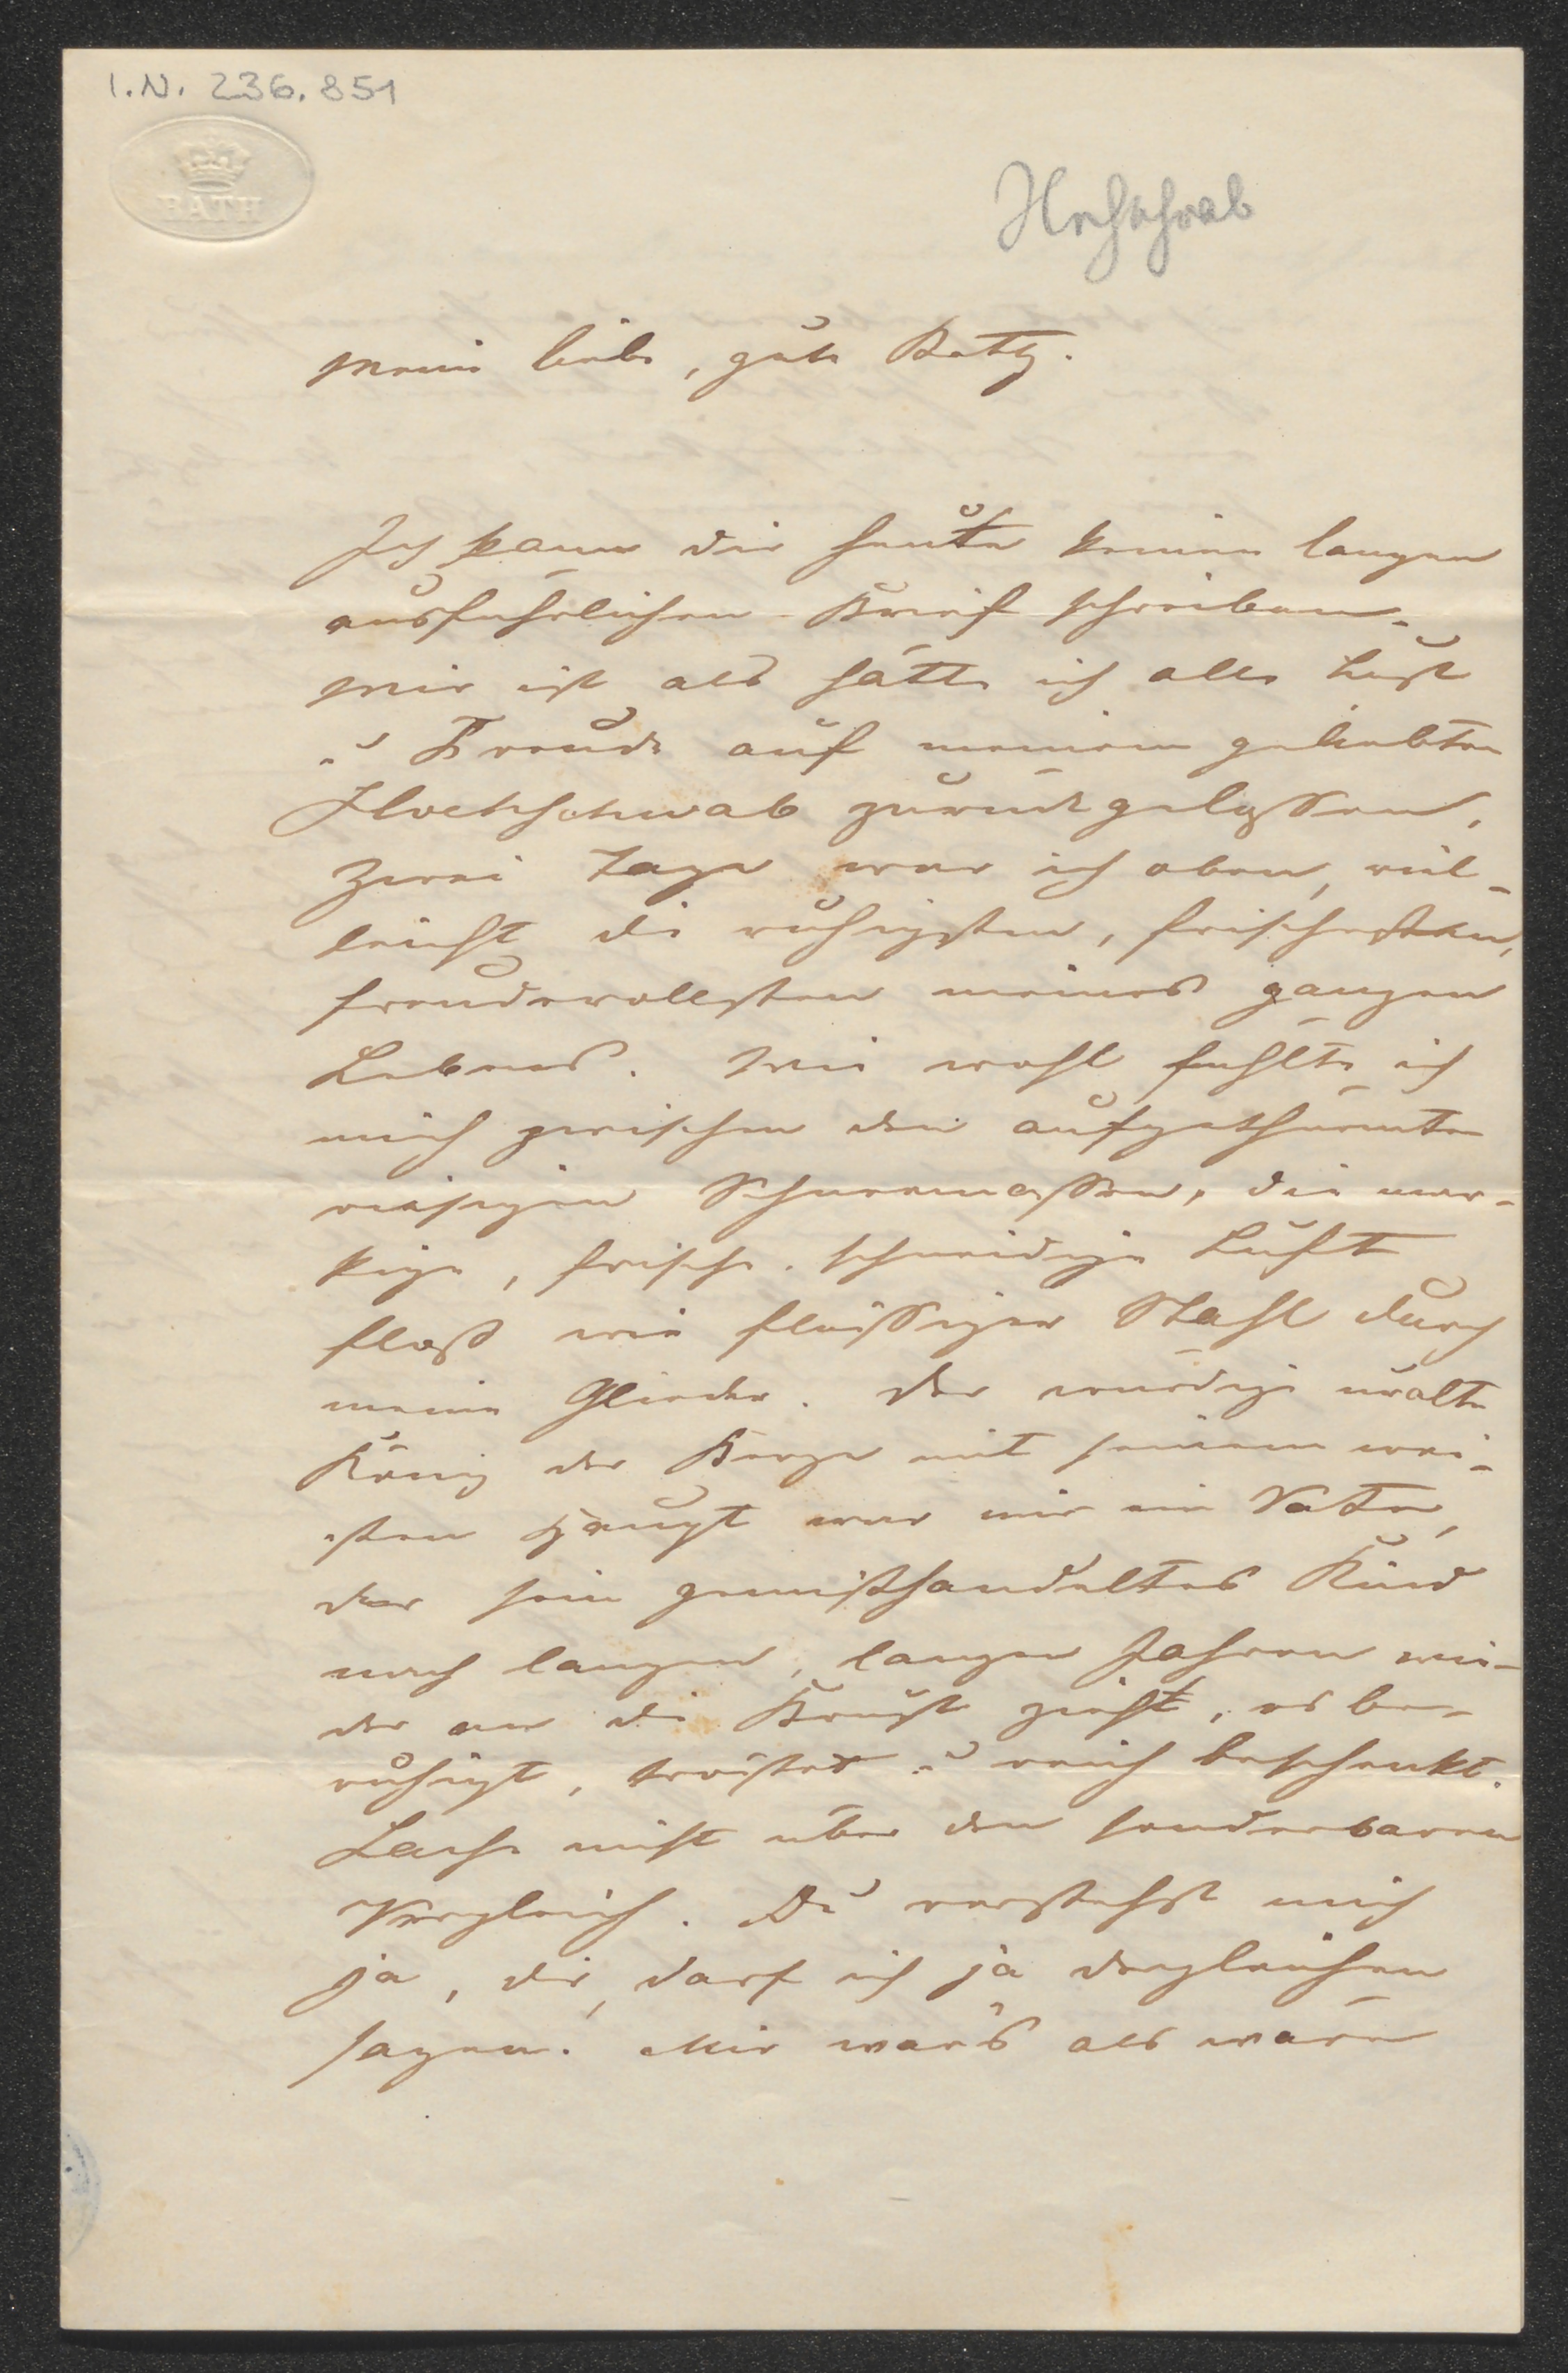 I.N. 236.851
BATH
Hochschwab
Meine liebe, gute Betty.
Ich kann dir heute keinen langen
ausführlichen Brief schreiben.
Mir ist als hätte ich alle Lust
u Freude auf meinem geliebten
Hochschwab zurückgelassen.
Zwei Tage war ich oben, viel-
leicht die ruhigsten, frischesten,
freudevollsten meines ganzen
Lebens. Wie wohl fühlte ich
mich zwischen den aufgethürmten
riesigen Schneemassen, die mar-
kige, frische, schneidige Luft
floß wie flüssiger Stahl durch
meine Glieder. Der würdige uralte
König der Berge mit seinem wei-
ßen Haupt war mir ein Vater,
der sein gemißhandeltes Kind
nach langen, langen Jahren wie-
der an die Brust zieht, es be-
ruhigt, tröstet u reich beschenkt.
Lache nicht über den sonderbaren
Vergleich. Du verstehst mich
ja, dir darf ich ja dergleichen
sagen. Mir war's als wären